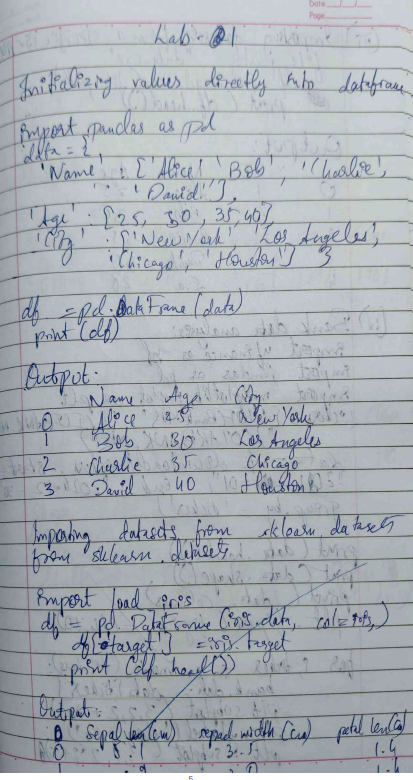 Date
Page
Lab - 1
Initializing values directly into dataframe
import pandas as pd
data = {
'Name' : ['Alice' 'Bob' , 'Charlie',
'David'],
'Age' : [25, 30, 35, 40],
'City' : ['New York' , 'Los Angeles',
'Chicago', 'Houston'] }
df = pd.DataFrame (data)
print (df)
Output:
Name Age City
0 Alice 25 New York
1 Bob 30 Los Angeles
2 Charlie 35 Chicago
3 David 40 Houston
Importing datasets from sklearn.datasets
from sklearn.datasets
import load iris
df = pd. DataFrame (iris.data, col = iris,)
df['target'] = iris.target
print (df.head())
Output:
sepal len(cm) sepal.width (cm) petal len(cm)
0 5.1 3.5 1.4
1.4